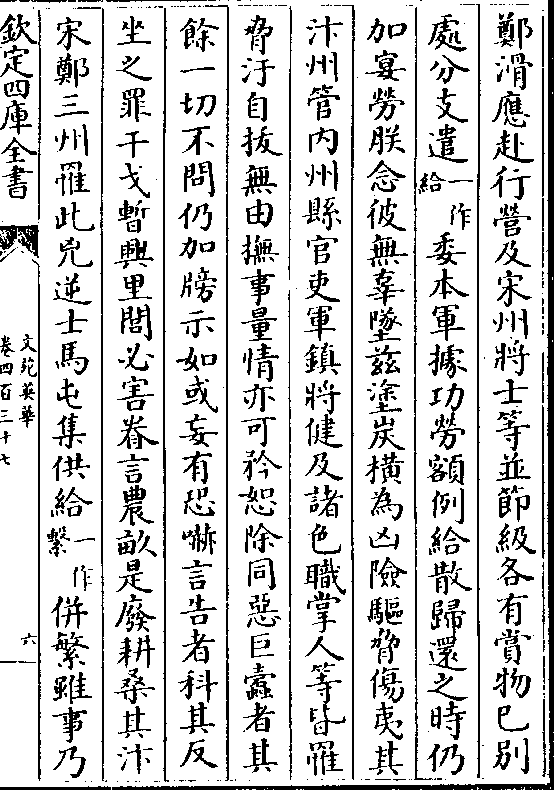 鄭滑應赴行營及宋州將士等並節級各有賞物已別
處分支遣一作給委本軍據功勞額例給散歸還之時仍
加宴勞朕念彼無辜墜兹塗炭横為凶險驅脅傷夷其
汴州管内州縣官吏軍鎮將健及諸色職掌人等皆罹
脅汙自拔無由撫事量情亦可矜恕除同惡巨蠹者其
餘一切不問仍加牓示如或妄有恐嚇言告者科其反
坐之罪干戈暫興里閭必害眷言農畝是廢耕桑其汴
宋鄭三州罹此兇逆士馬屯集供給一作繫併繁雖事乃
欽定四庫全書
文苑英華
卷四百三十七
六